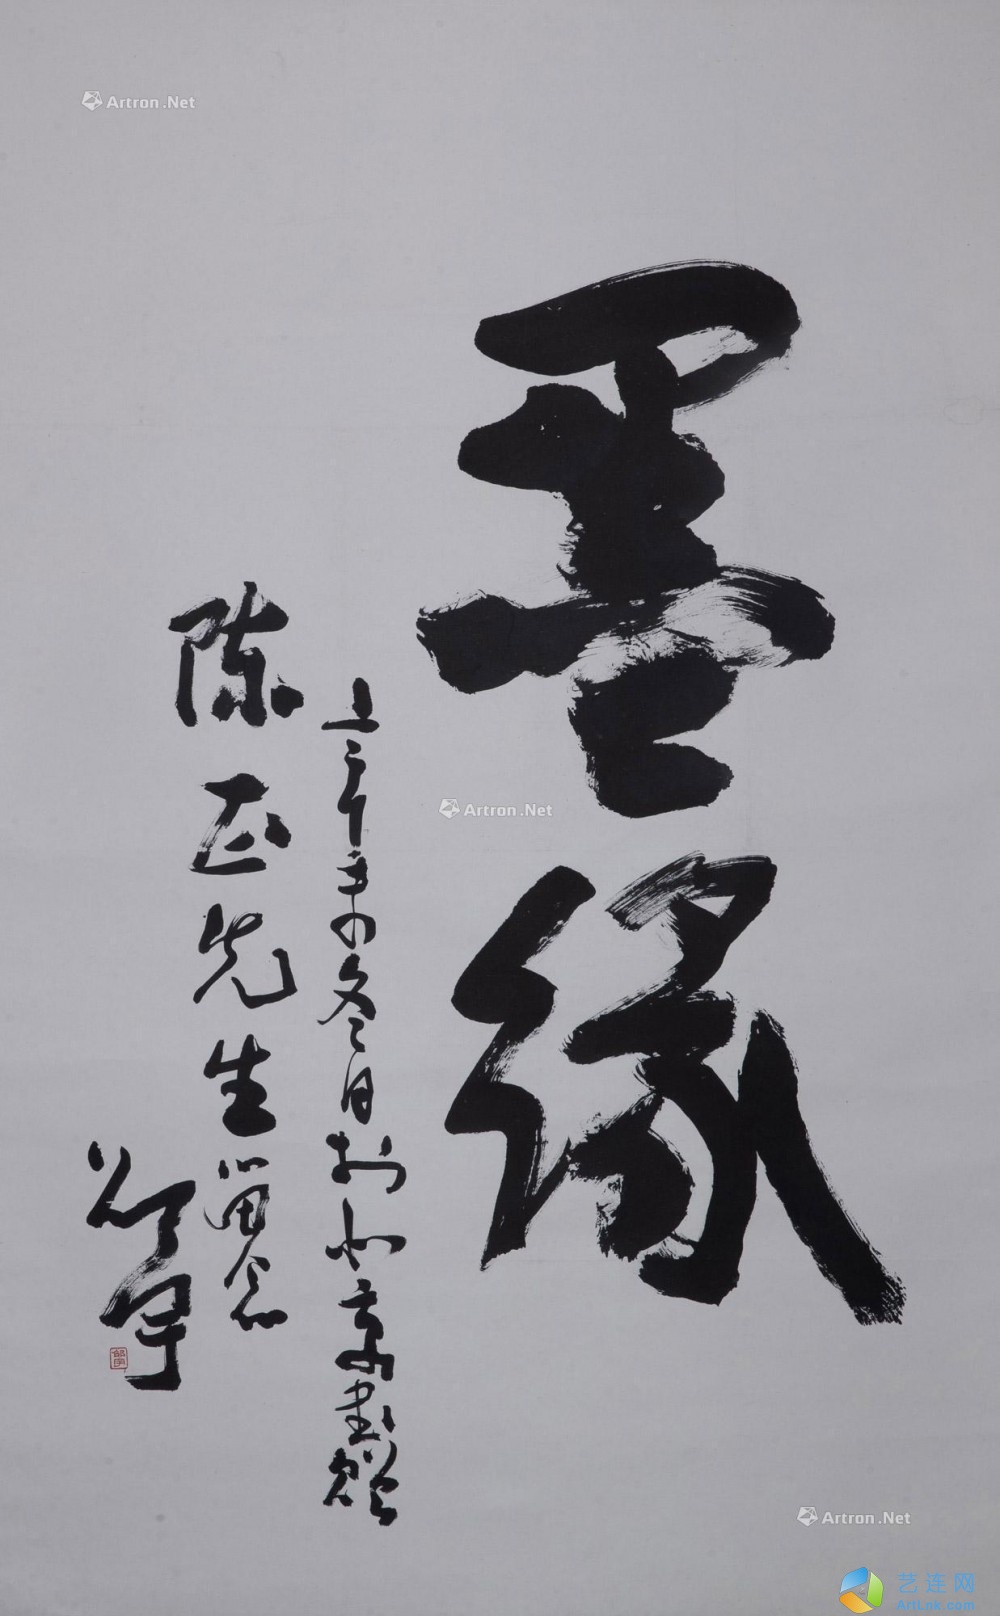 墨缘
辛未冬日於北京書贈
陈正先生留念
Artron.Net
Artron.Net
Artron.Net
艺连网
ArtLpk.com